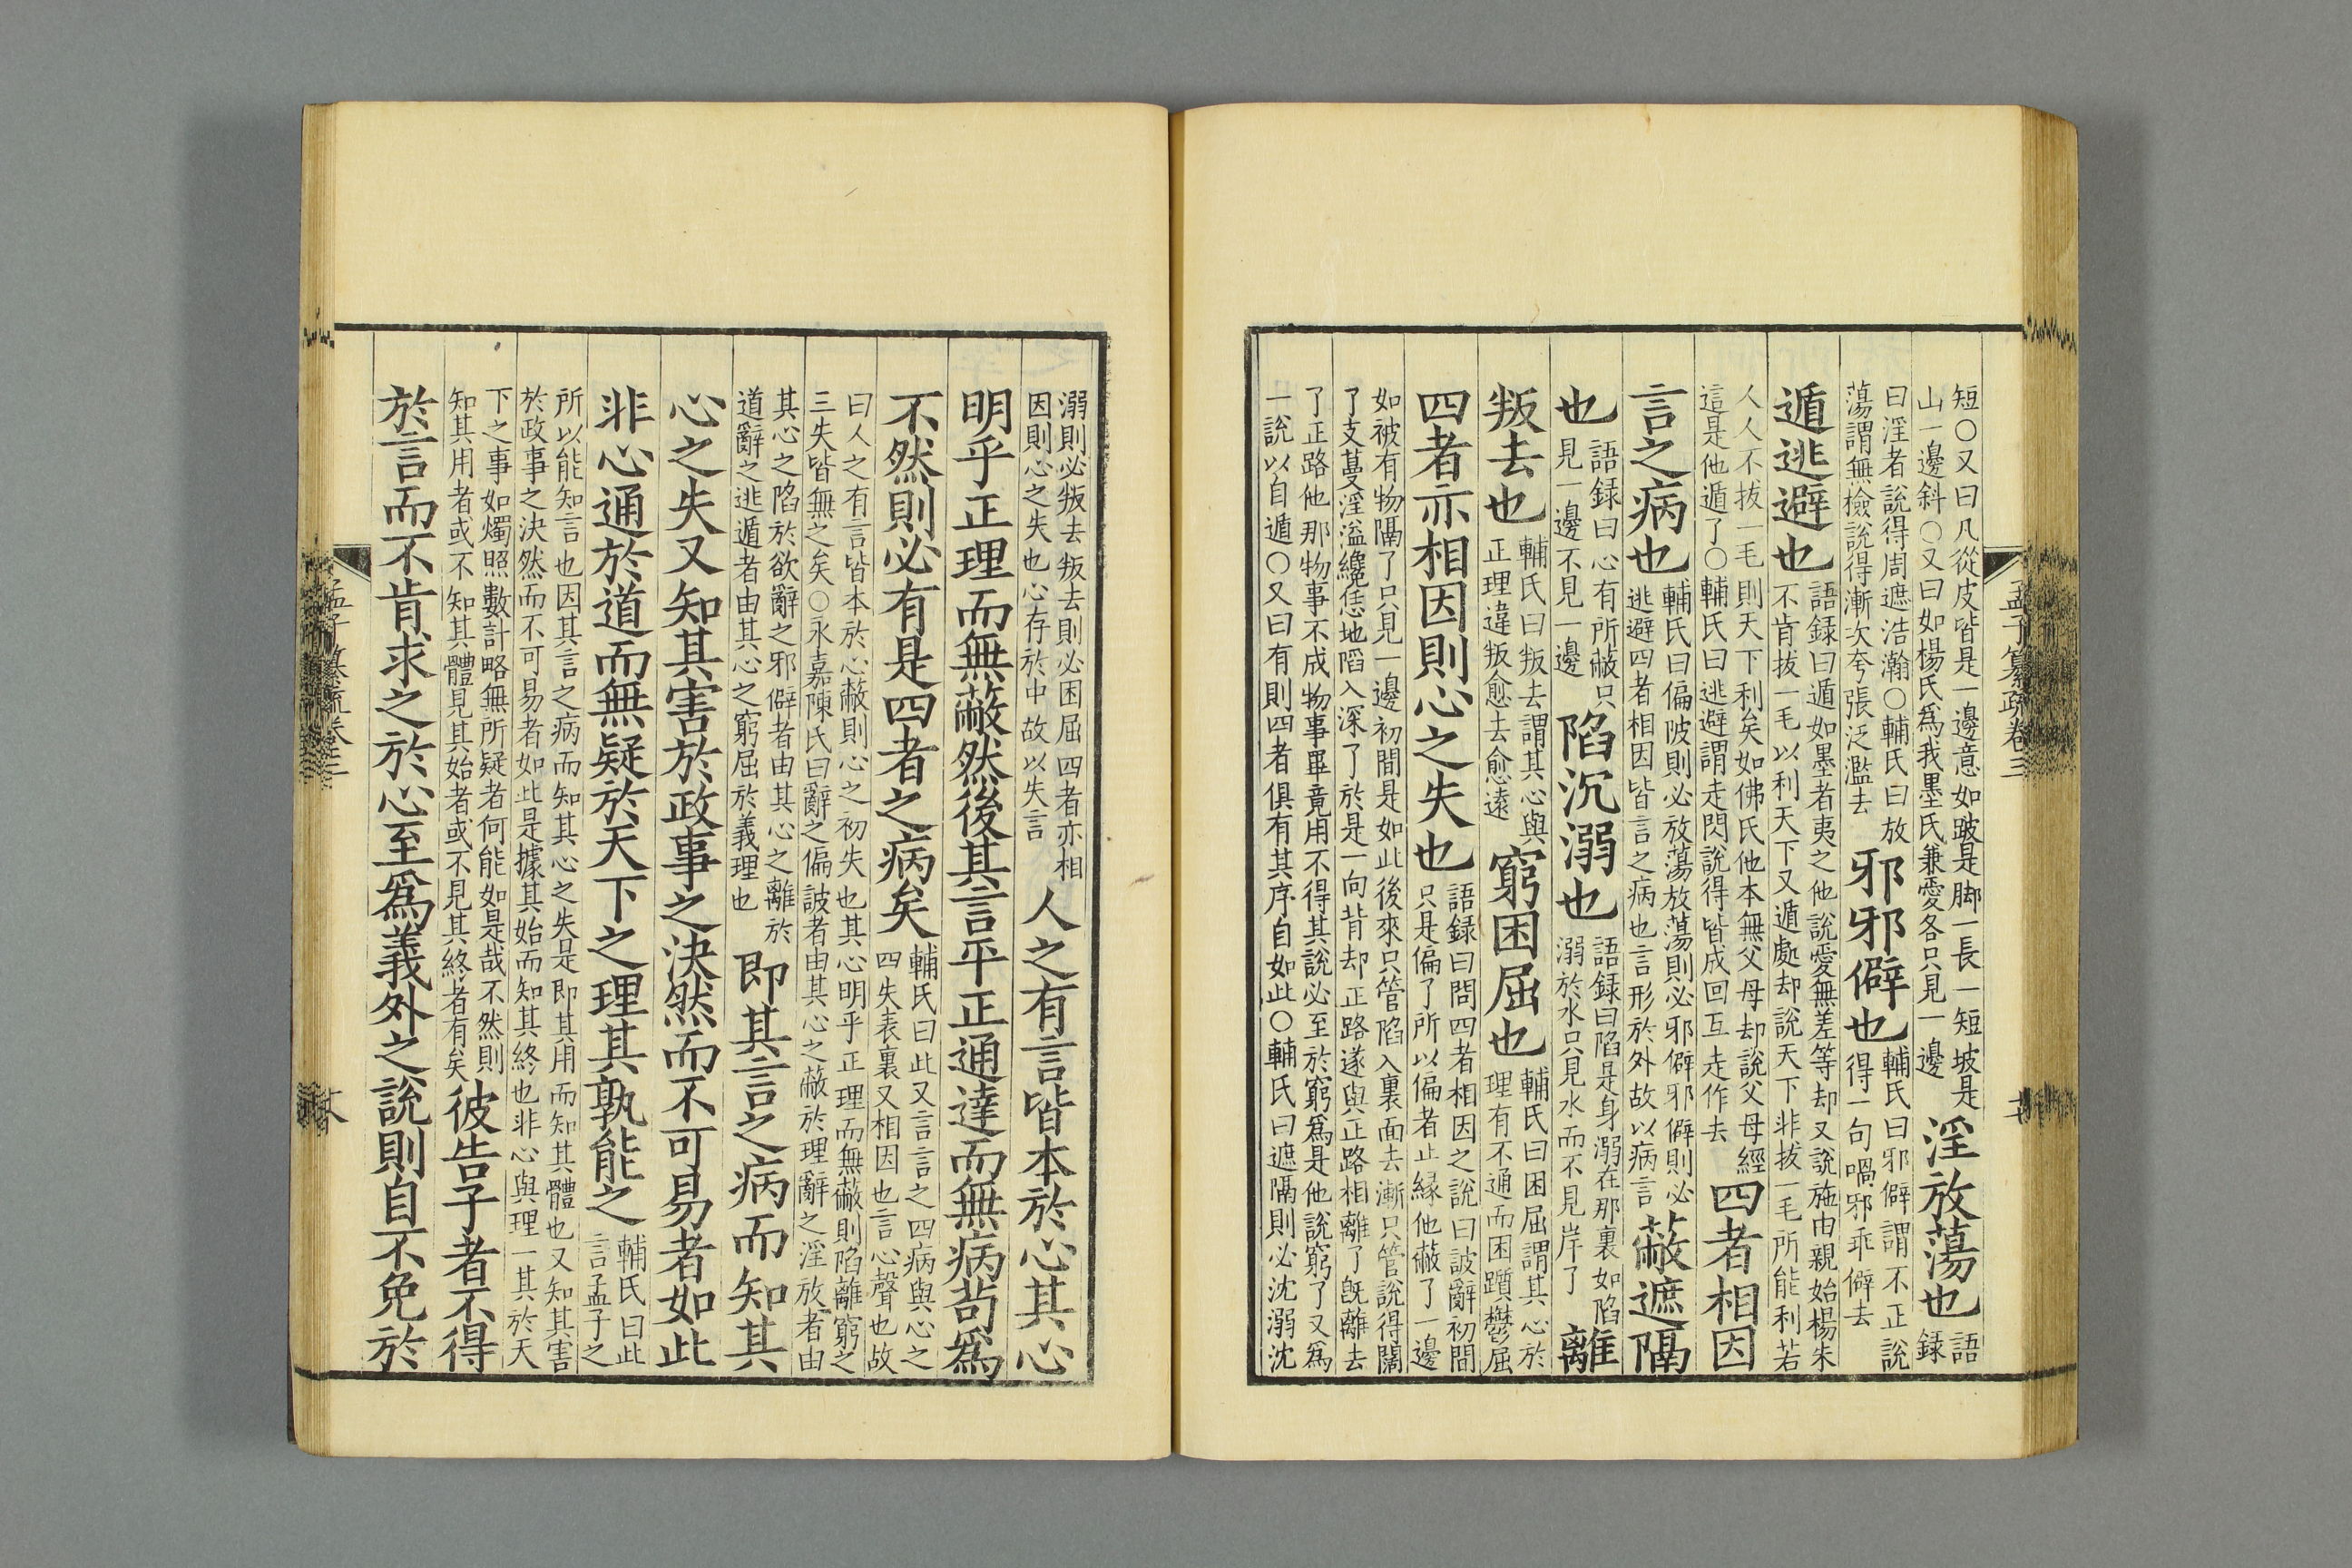 孟子纂疏卷三
短○又曰凡從皮皆是一邊意如跛是脚一長一短坡是
山一邊斜○又曰如楊氏爲我墨氏兼愛各只見一邊
淫放蕩也
語
録
曰淫者說得周遮浩瀚○輔氏曰放
蕩謂無檢說得漸次夸張泛濫去
邪邪僻也
輔氏曰邪僻謂不正說
得一句喎邪乖僻去
遁逃避也
語録曰遁如墨者夷之他說愛無差等却又說施由親始楊朱
不肯拔一毛以利天下又遁處却說天下非拔一毛所能利若
人人不拔一毛則天下利矣如佛氏他本無父母却說父母經
這是他遁了○輔氏曰逃避謂走閃說得皆成回互走作去
四者相因
言之病也
輔氏曰偏陂則必放蕩放蕩則必邪僻邪僻則必
逃避四者相因皆言之病也言形於外故以病言
蔽遮隔
也
語録曰心有所蔽只
見一邊不見一邊
陷沉溺也
語録曰陷是身溺在那裏如陷
溺於水只見水而不見岸了
離
叛去也
輔氏曰叛去謂其心與
正理違叛愈去愈遠
窮困屈也
輔氏曰困屈謂其心於
理有不通而困躓鬱屈
四者亦相因則心之失也
語録曰問四者相因之說曰詖辭初間
只是偏了所以偏者止縁他蔽了一邊
如被有物隔了只見一邊初間是如此後來只管陷入裏面去漸只管說得闊
了支蔓淫溢纔恁地陷入深了於是一向背却正路遂與正路相離了既離去
了正路他那物事不成物事畢竟用不得其說必至於窮爲是他說窮了又爲
一說以自遁○又曰有則四者俱有其序自如此○輔氏曰遮隔則必沈溺沈
溺則必叛去叛去則必困屈四者亦相
因則心之失也心存於中故以失言
人之有言皆本於心其心
明乎正理而無蔽然後其言平正通達而無病苟爲
不然則必有是四者之病矣
輔氏曰此又言言之四病與心之
四失表裏又相因也言心聲也故
曰人之有言皆本於心蔽則心之初失也其心明乎正理而無蔽則陷離窮之
三失皆無之矣○永嘉陳氏曰辭之偏詖者由其心之蔽於理辭之淫放者由
其心之陷於欲辭之邪僻者由其心之離於
道辭之逃遁者由其心之窮屈於義理也
即其言之病而知其
心之失又知其害於政事之決然而不可易者如此
非心通於道而無疑於天下之理其孰能之
輔氏曰此
言孟子之
所以能知言也因其言之病而知其心之失是即其用而知其體也又知其害
於政事之決然而不可易者如此是據其始而知其終也非心與理一其於天
下之事如燭照數計略無所疑者何能如是哉不然則
知其用者或不知其體見其始者或不見其終者有矣
彼告子者不得
於言而不肯求之於心至爲義外之說則自不免於
孟子纂疏卷三